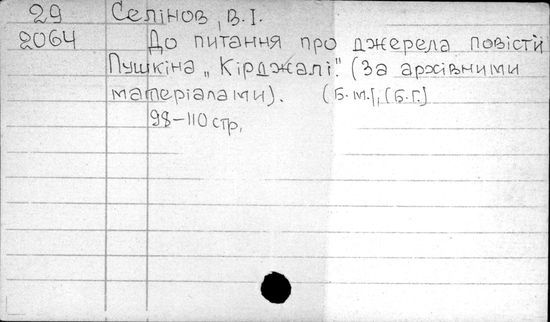 29 Селінов, В.І.
2064 До питання про джерела повісті
Пушкіна „Кірджалі." (За архівними
матеріалами). [Б.м.], [Б.г.]
98-110 стр.